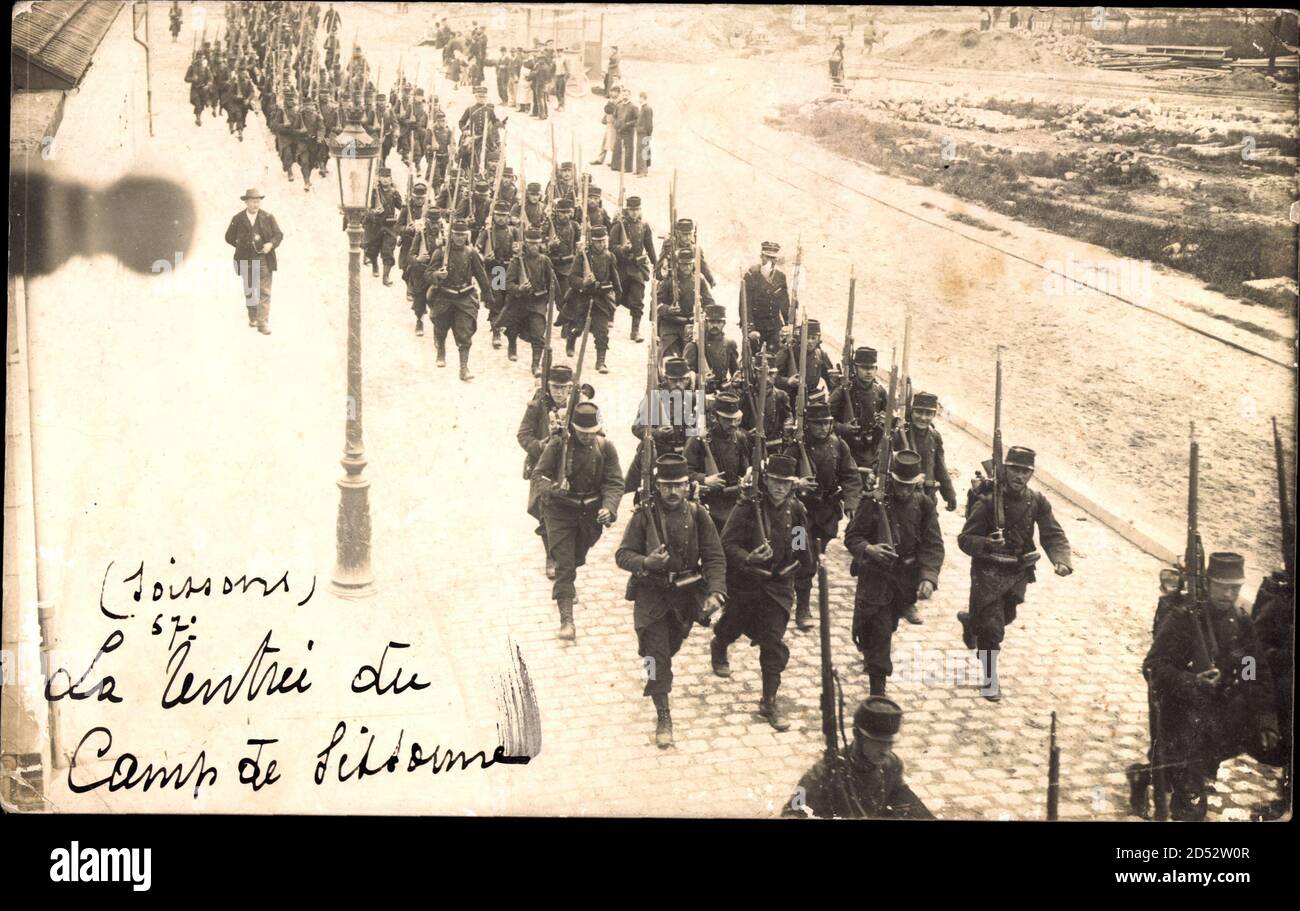 (Soissons)
57.
La Rentrée du
Camp de Sissonne
alamy
Image ID: 2D52W0R
www.alamy.com